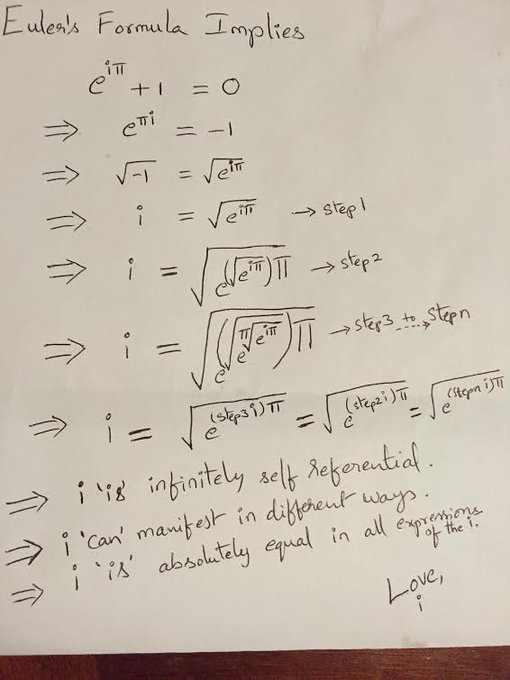 Euler's Formula Implies
e^{iπ} + 1 = 0
⇒ e^{πi} = -1
⇒ √-1 = √e^{iπ}
⇒ i = √e^{iπ} → step 1
⇒ i = √e^{(√e^{iπ})π} → step 2
⇒ i = √e^{(√e^{π√e^{iπ}})π} → step 3 to step n
⇒ i = √e^{(step 3 i)π} = √e^{(step 2 i)π} = √e^{(step n i)π}
⇒ i 'is' infinitely self referential.
⇒ i 'can' manifest in different ways.
⇒ i 'is' absolutely equal in all expressions of the i.
Love,
i